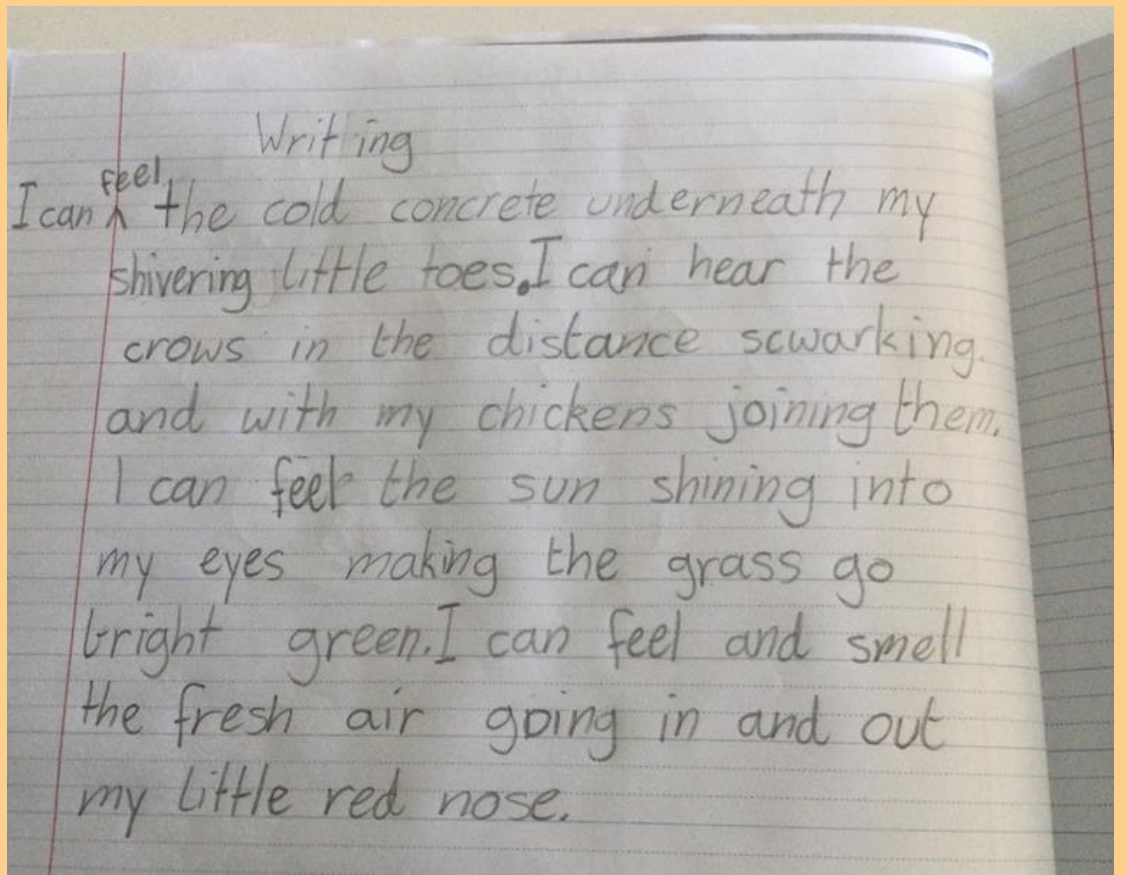 Writing
I can feel the cold concrete underneath my
shivering little toes. I can hear the
crows in the distance scwarking.
and with my chickens joining them.
I can feel the sun shining into
my eyes making the grass go
bright green. I can feel and smell
the fresh air going in and out
my little red nose.